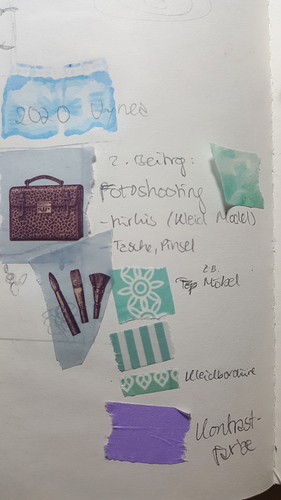 2020
2. Beitrag:
Fotoshooting
- türkis (Kleid Model)
- Tasche, Pinsel
z.B.
Möbel
Kleidbordüre
Kontrast-
farbe